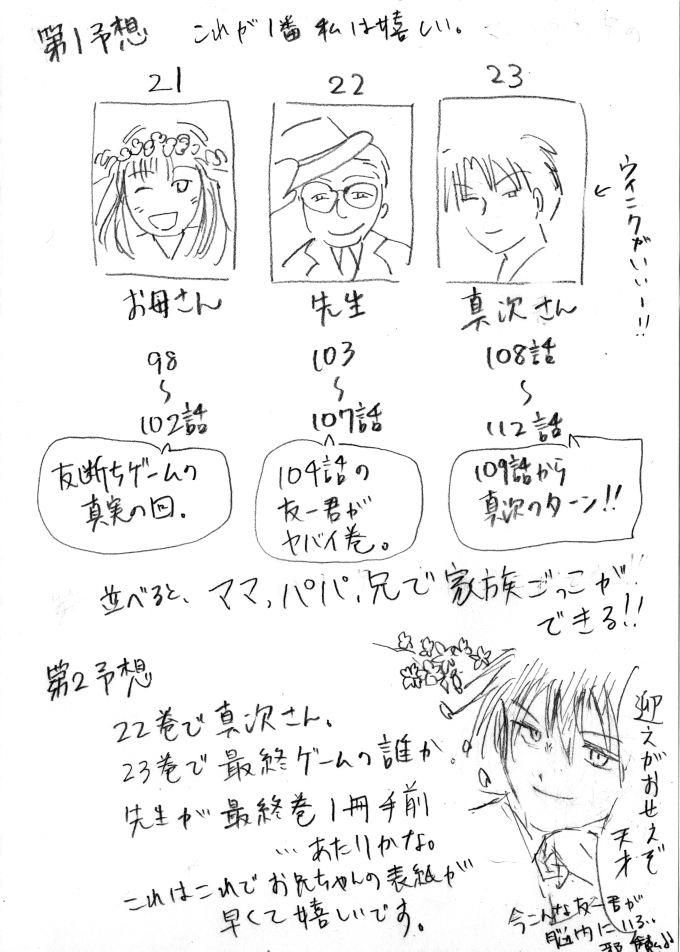 第1予想 これが1番私は嬉しい。
21
22
23
ウインクがいいー!!
お母さん
先生
真次さん
98
〜
102話
103
〜
107話
108話
〜
112話
友断ちゲームの
真実の回。
104話の
友一君が
ヤバイ巻。
109話から
真次のターン!!
並べると、ママ、パパ、兄で家族ごっこが
できる!!
第2予想
22巻で真次さん。
23巻で最終ゲームの誰か。
先生が最終巻1冊手前
…あたりかな。
これはこれでお兄ちゃんの表紙が
早くて嬉しいです。
迎えがおせえぞ
天才
今こんな友一君が
脳内にいる。